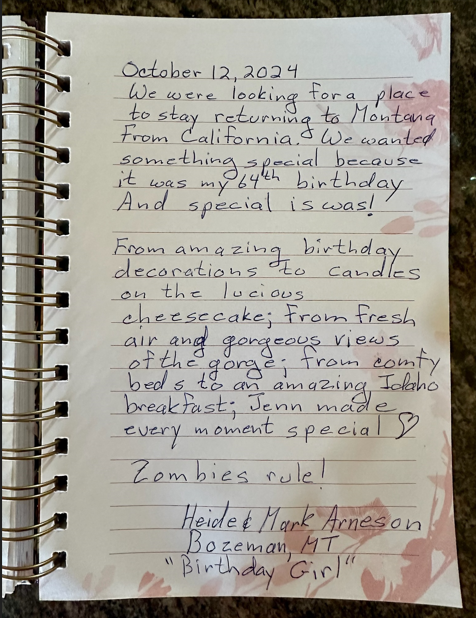 October 12, 2024
We were looking for a place
to stay returning to Montana
from California. We wanted
something special because
it was my 64th birthday
And special is was!
From amazing birthday
decorations to candles
on the lucious
cheesecake; from fresh
air and gorgeous views
of the gorge; from comfy
beds to an amazing Idaho
breakfast; Jenn made
every moment special ♡
Zombies rule!
Heide & Mark Arneson
Bozeman, MT
"Birthday Girl"